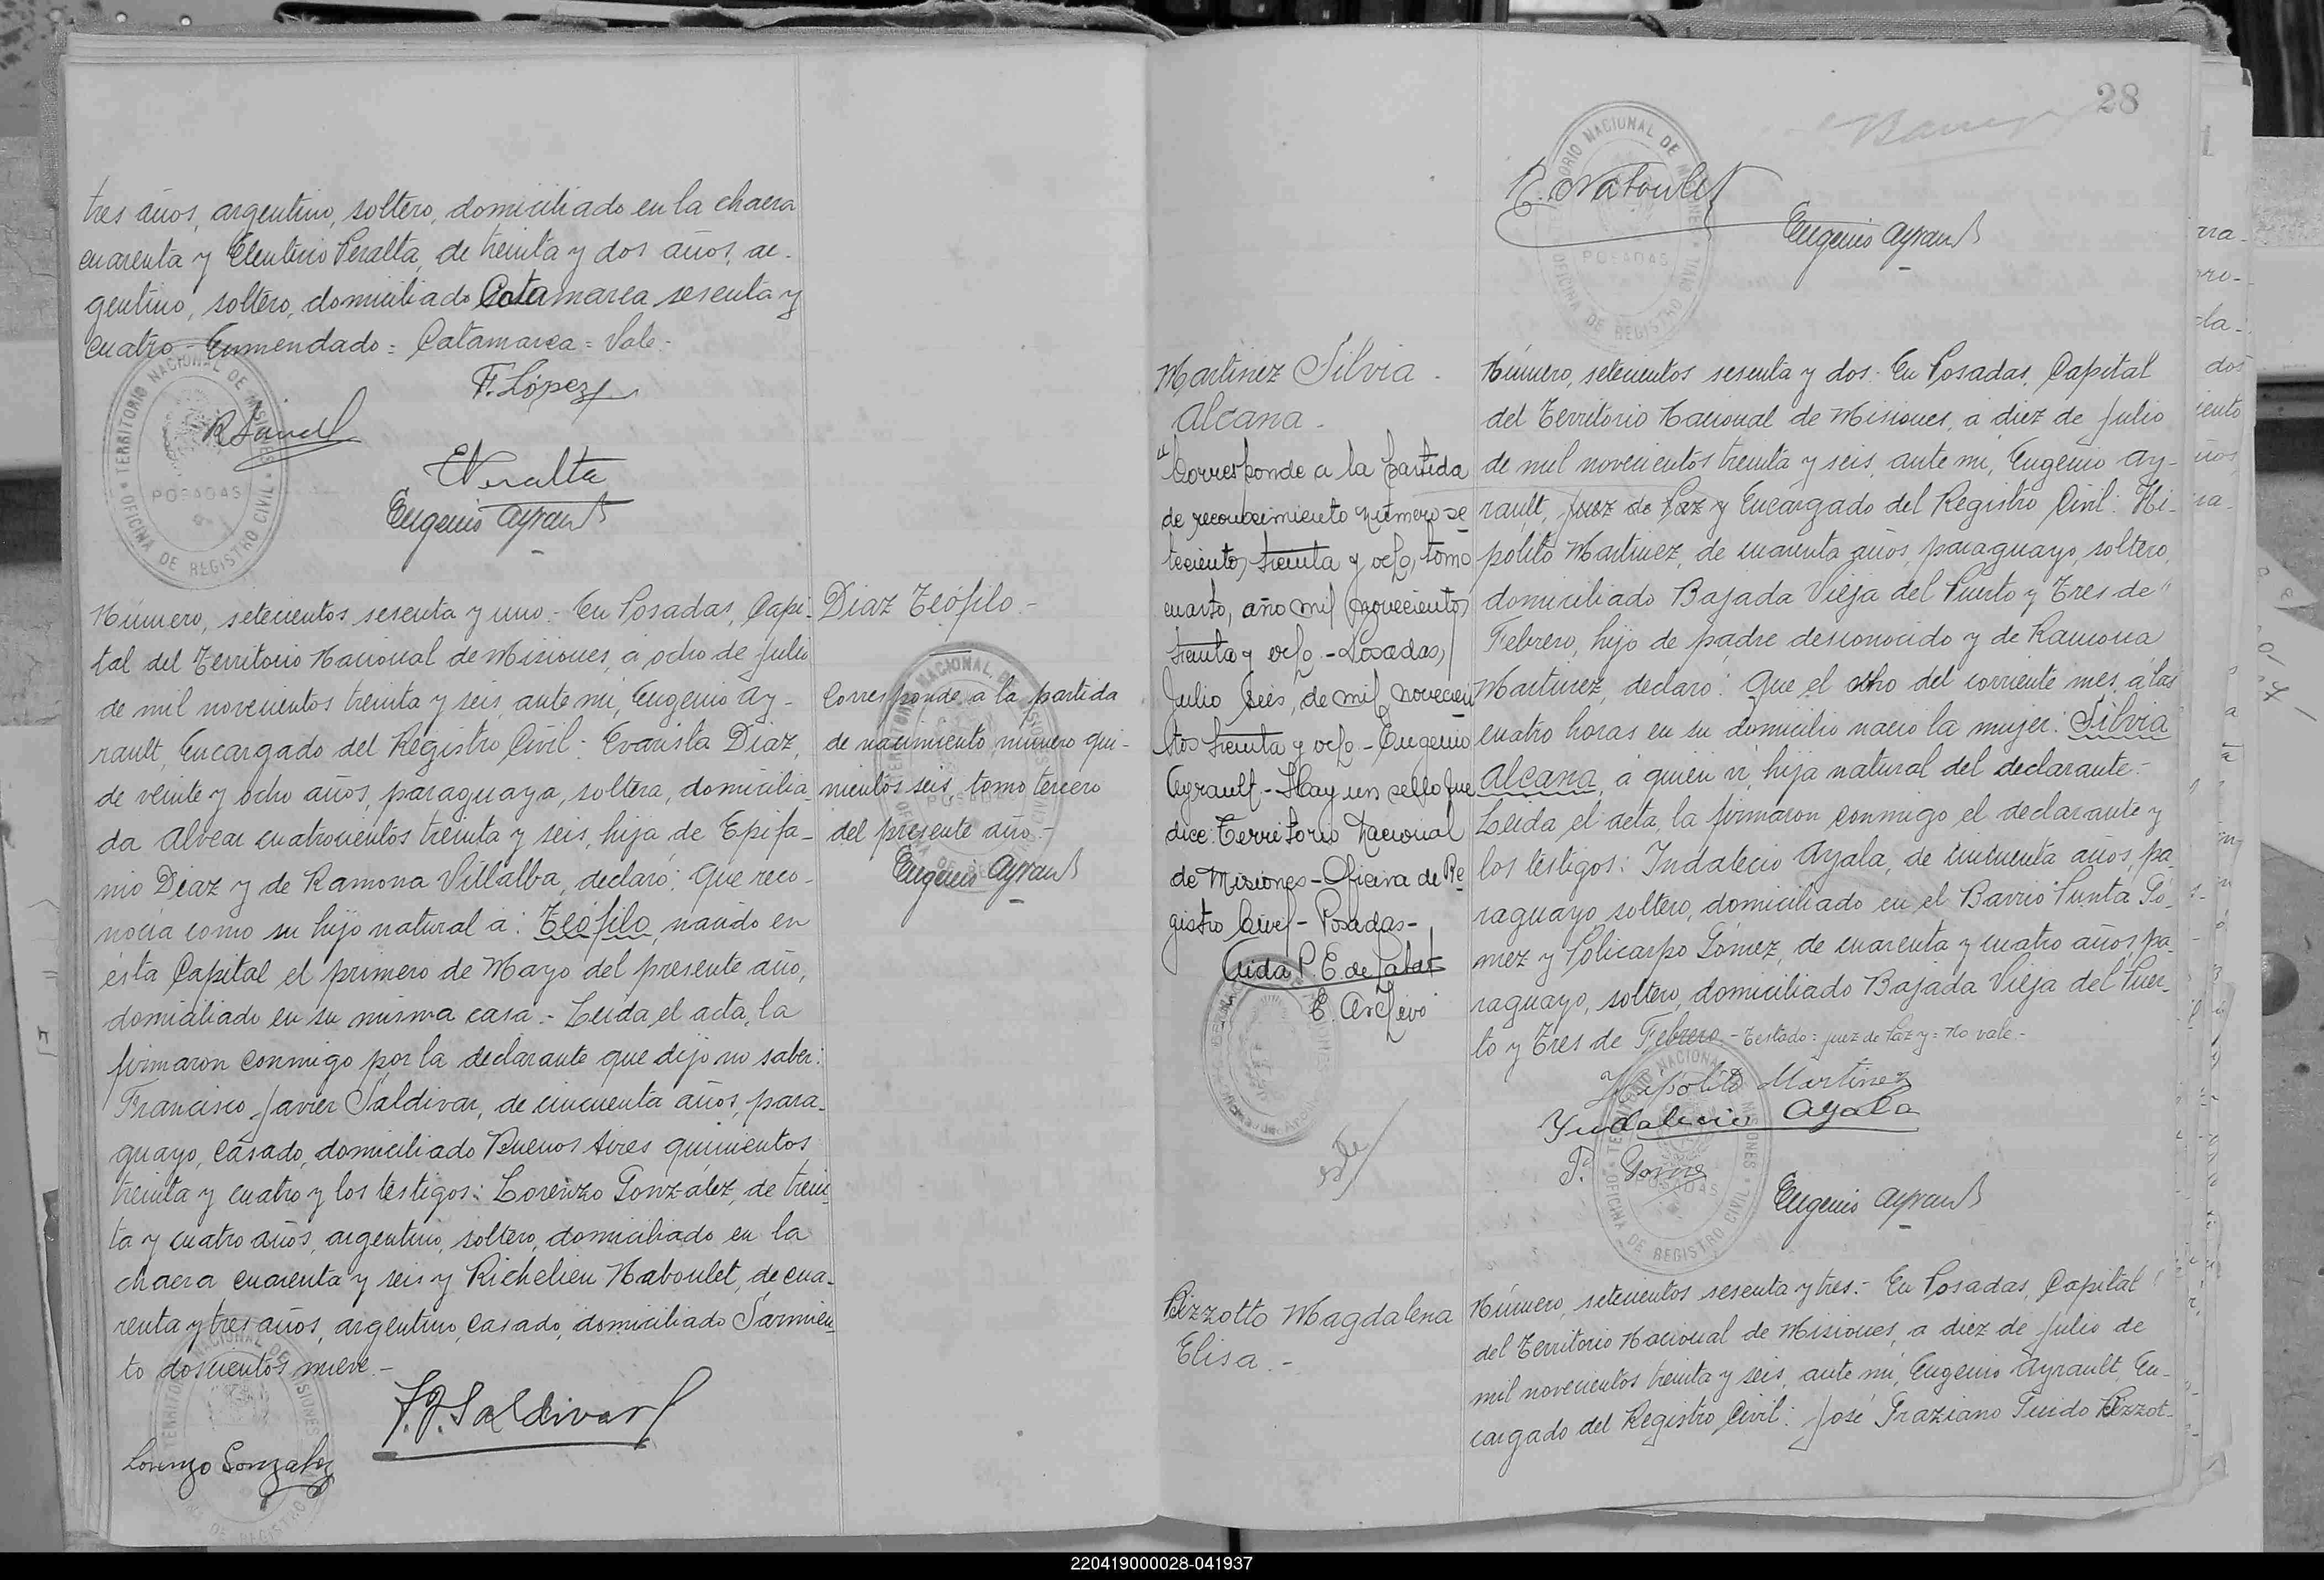 tres años, argentino, soltero, domiciliado en la chacra
cuarenta y Eleuterio Peralta, de treinta y dos años, ar-
gentino, soltero, domiciliado Catamarca sesenta y
cuatro - Enmendado = Catamarca = Vale -
F. López
E Peralta
Eugenio Ayrault
TERRITORIO NACIONAL DE MISIONES
POSADAS
OFICINA DE REGISTRO CIVIL
Número, setecientos sesenta y uno.- En Posadas, Capi-
tal del Territorio Nacional de Misiones, a ocho de Julio
de mil novecientos treinta y seis, ante mi, Eugenio Ay-
rault, Encargado del Registro Civil: Evarista Diaz,
de veinte y ocho años, paraguaya, soltera, domicilia-
da Alvear cuatrocientos treinta y seis, hija de Epifa-
nio Diaz y de Ramona Villalba, declaró: Que reco-
nocia como su hijo natural a: Teófilo, nacido en
ésta Capital el primero de Mayo del presente año,
domiciliado en su misma casa.- Leida el acta, la
firmaron conmigo por la declarante que dijo no saber:
Francisco Javier Saldivar, de cincuenta años, para-
guayo, casado, domiciliado Buenos Aires quinientos
treinta y cuatro y los testigos: Lorenzo González, de trein-
ta y cuatro años, argentino, soltero, domiciliado en la
chacra cuarenta y seis y Richelieu Naboulet, de cua-
renta y tres años, argentino, casado, domiciliado Sarmien-
to doscientos nueve.-
F. J. Saldivar
Lorenzo Gonzalez
Diaz Teófilo.-
Corresponde a la partida
de nacimiento número qui-
nientos seis, tomo tercero
del presente año.-
Eugenio Ayrault
28
R. Naboulet
Eugenio Ayrault
Martinez Silvia
Alcana.
"Corresponde a la partida
de reconocimiento número se
tecientos treinta y ocho, tomo
cuarto, año mil novecientos
treinta y ocho.- Posadas,
Julio seis, de mil novecien
tos treinta y ocho.- Eugenio
Ayrault.- Hay un sello que
dice: Territorio Nacional
de Misiones - Oficina de Re
gistro Civil - Posadas -
E. Archivo
Número, setecientos sesenta y dos.- En Posadas, Capital
del Territorio Nacional de Misiones, a diez de Julio
de mil novecientos treinta y seis, ante mi, Eugenio Ay-
rault, Juez de Paz y Encargado del Registro Civil: Hi-
pólito Martinez, de cuarenta años, paraguayo, soltero,
domiciliado Bajada Vieja del Puerto y Tres de
Febrero, hijo de padre desconocido y de Ramona
Martinez, declaró: Que el ocho del corriente mes, a las
cuatro horas en su domicilio nació la mujer: Silvia
Alcana, a quien vi, hija natural del declarante.-
Leida el acta, la firmaron conmigo el declarante y
los testigos: Indalecio Ayala, de cincuenta años, pa-
raguayo, soltero, domiciliado en el Barrio Punta Gó-
mez y Policarpo Gómez, de cuarenta y cuatro años, pa-
raguayo, soltero, domiciliado Bajada Vieja del Puer-
to y Tres de Febrero.- Testado = juez de Paz y = No vale.-
Hipólito Martinez
Yndalecio Ayala
P. Gomez
Eugenio Ayrault
Bizzotto Magdalena
Elisa.-
Número, setecientos sesenta y tres.- En Posadas, Capital
del Territorio Nacional de Misiones, a diez de Julio de
mil novecientos treinta y seis, ante mi, Eugenio Ayrault, En-
cargado del Registro Civil: José Graziano Guido Bizzot-
220419000028-041937